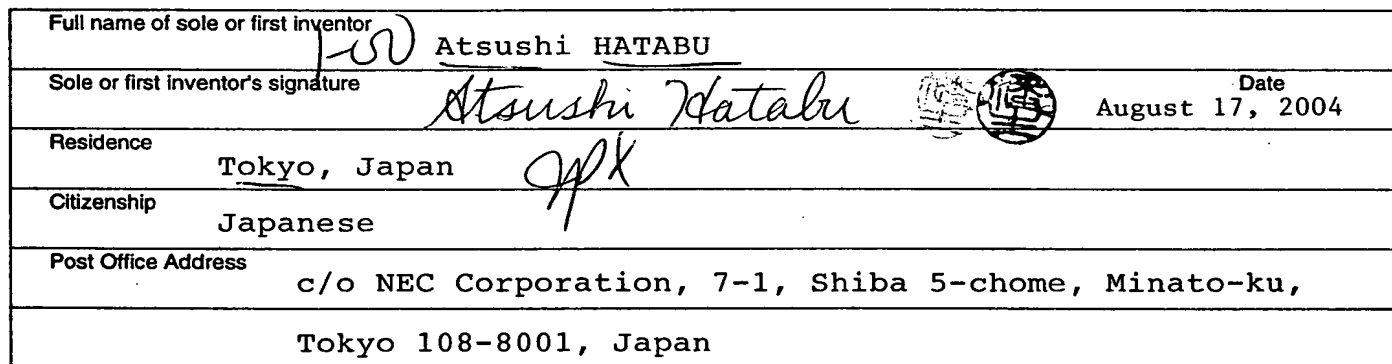 Full name of sole or first inventor
1-00 Atsushi HATABU
Sole or first inventor's signature
Atsushi Hatabu
Date
August 17, 2004
Residence
Tokyo, Japan JPX
Citizenship
Japanese
Post Office Address
c/o NEC Corporation, 7-1, Shiba 5-chome, Minato-ku,
Tokyo 108-8001, Japan